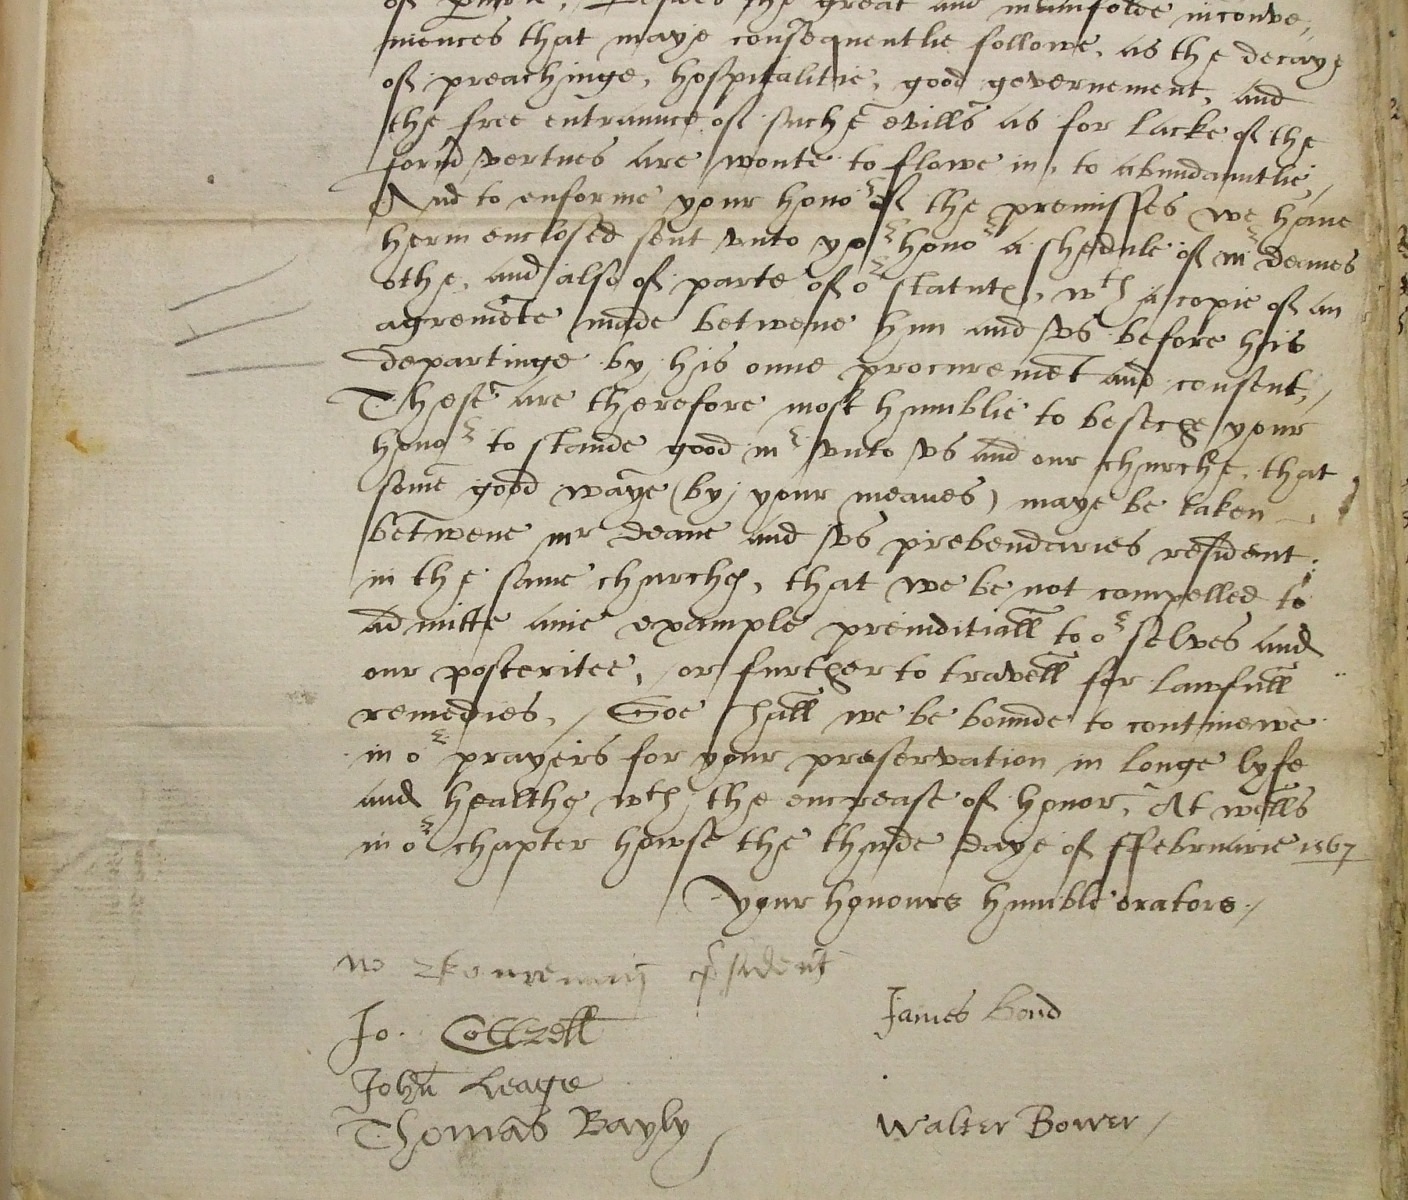 great and manifolde inconve
niences that maye consequentlie followe, as the decaye
of preachinge, hospitalitie, good governement, and
the free entraunce of suche evills as for lacke of the
forsd vertues are wonte to flowe in, to abundauntlie,
And to enforme your honor of the premisses we have
herin enclosed sent unto yor honor a shedule of mr deanes
othe, and also of parte of or statutes, wth a copie of an
agremēte made betwene him and us before his
departinge by his onne procuremēt and consent,
These are therefore most humblie to beseche your
honor to stande good mr unto us and our churche, that
some good waye (by your meanes) maye be taken
betwene mr deane and us prebendaries resident
in the same churche, that we be not compelled to
admitte anie example preiuditiall to or selves and
our posteritee, or further to travell for lawfull
remedies, / Soe shall we be bounde to continewe
in or prayers for your preservation in longe lyfe
and healthe wth the encrease of honor, At wells
in or chapter howse the thirde daye of ffebruarie 1567
Your honours humble orators /
president
Jo. Cottrell James Bond
John Leage
Thomas Bayly Walter Bower /